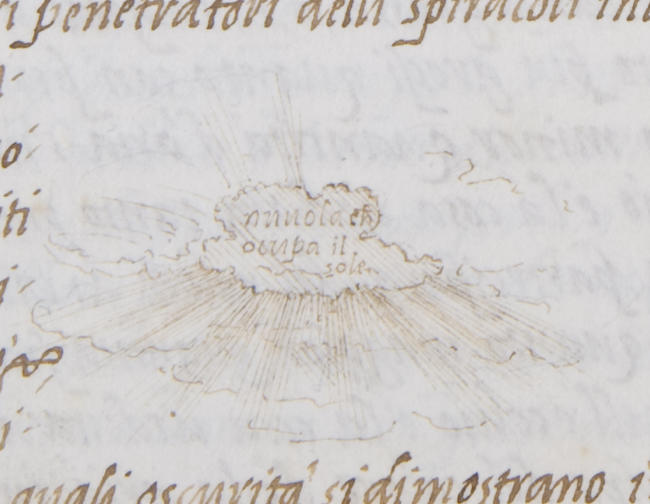 penetratori delli spiracoli
o
iti
nuvola ch
ocupa il
sole
quali oscurita si dimostrano i